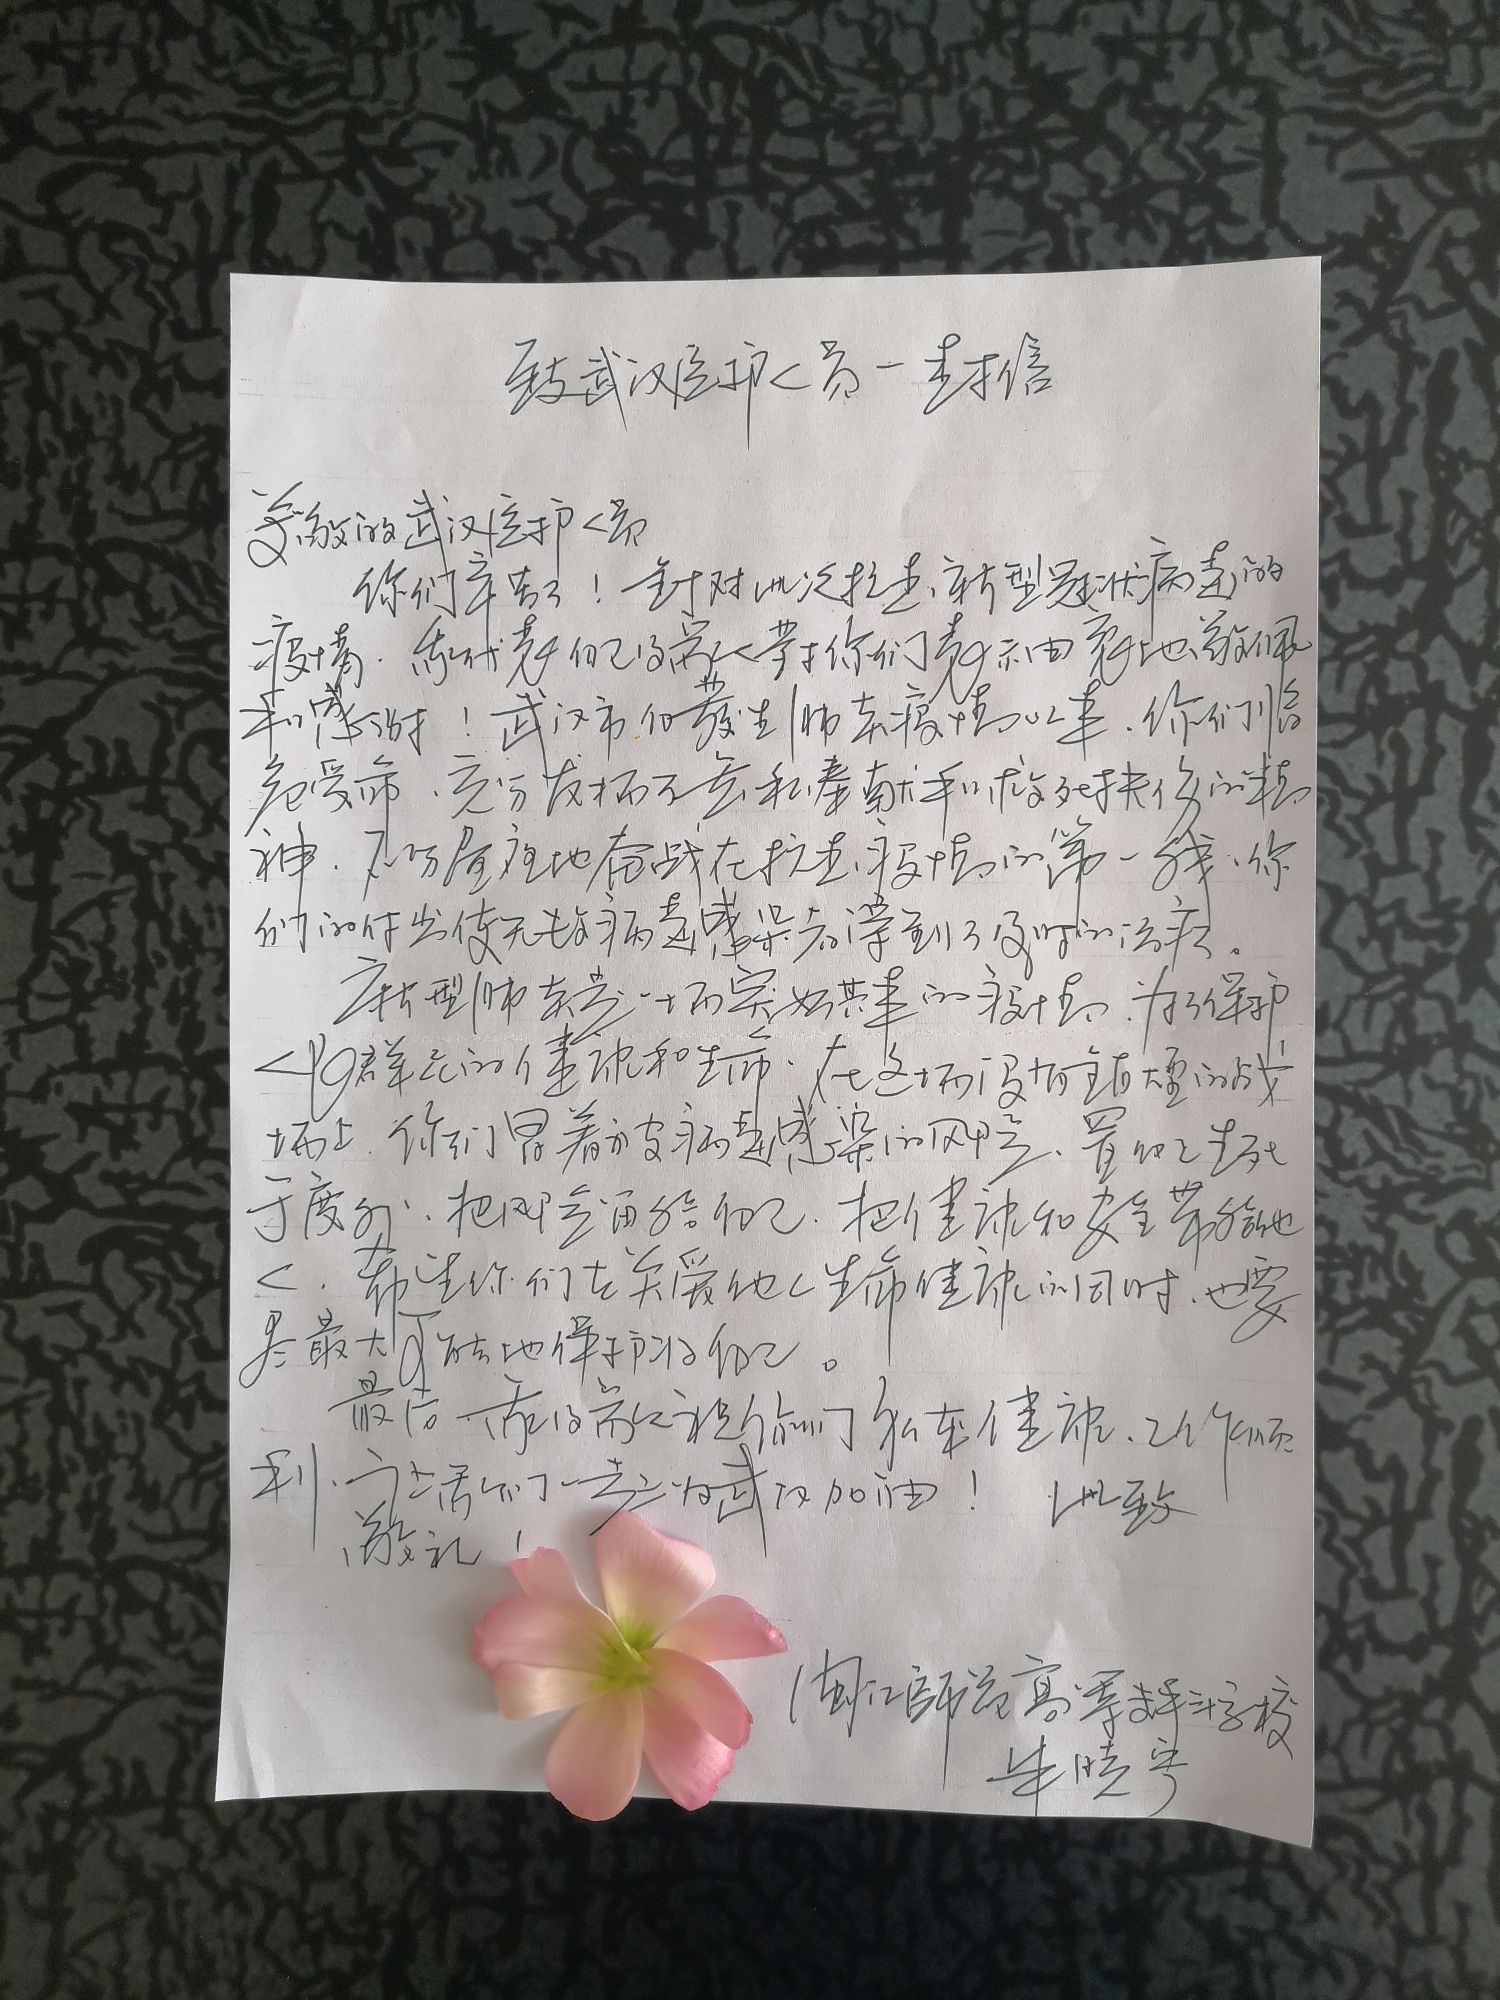 致武汉医护人员一封信
尊敬的武汉医护人员
你们辛苦了！针对此次抗击新型冠状病毒的
疫情，我代表自己及家人等对你们表示由衷地敬佩
和感谢！武汉市自发生肺炎疫情以来，你们临
危受命，充分发扬了无私奉献和救死扶伤的精
神，不分昼夜地奋战在抗击疫情的第一线，你
们的付出使无数病毒感染者得到了及时的治疗。
新型肺炎是一场突如其来的疫情，为了保护
人民群众的健康和生命，在这场没有硝烟的战
场上，你们冒着被病毒感染的风险，置自己生死
于度外，把风险留给自己，把健康和安全带给他
人，希望你们在关爱他人生命健康的同时，也要
尽最大可能地保护好自己。
最后，我及家人祝你们身体健康、工作顺
利，让我们一起为武汉加油！ 此致
敬礼！
闽江师范高等专科学校
朱晓宇